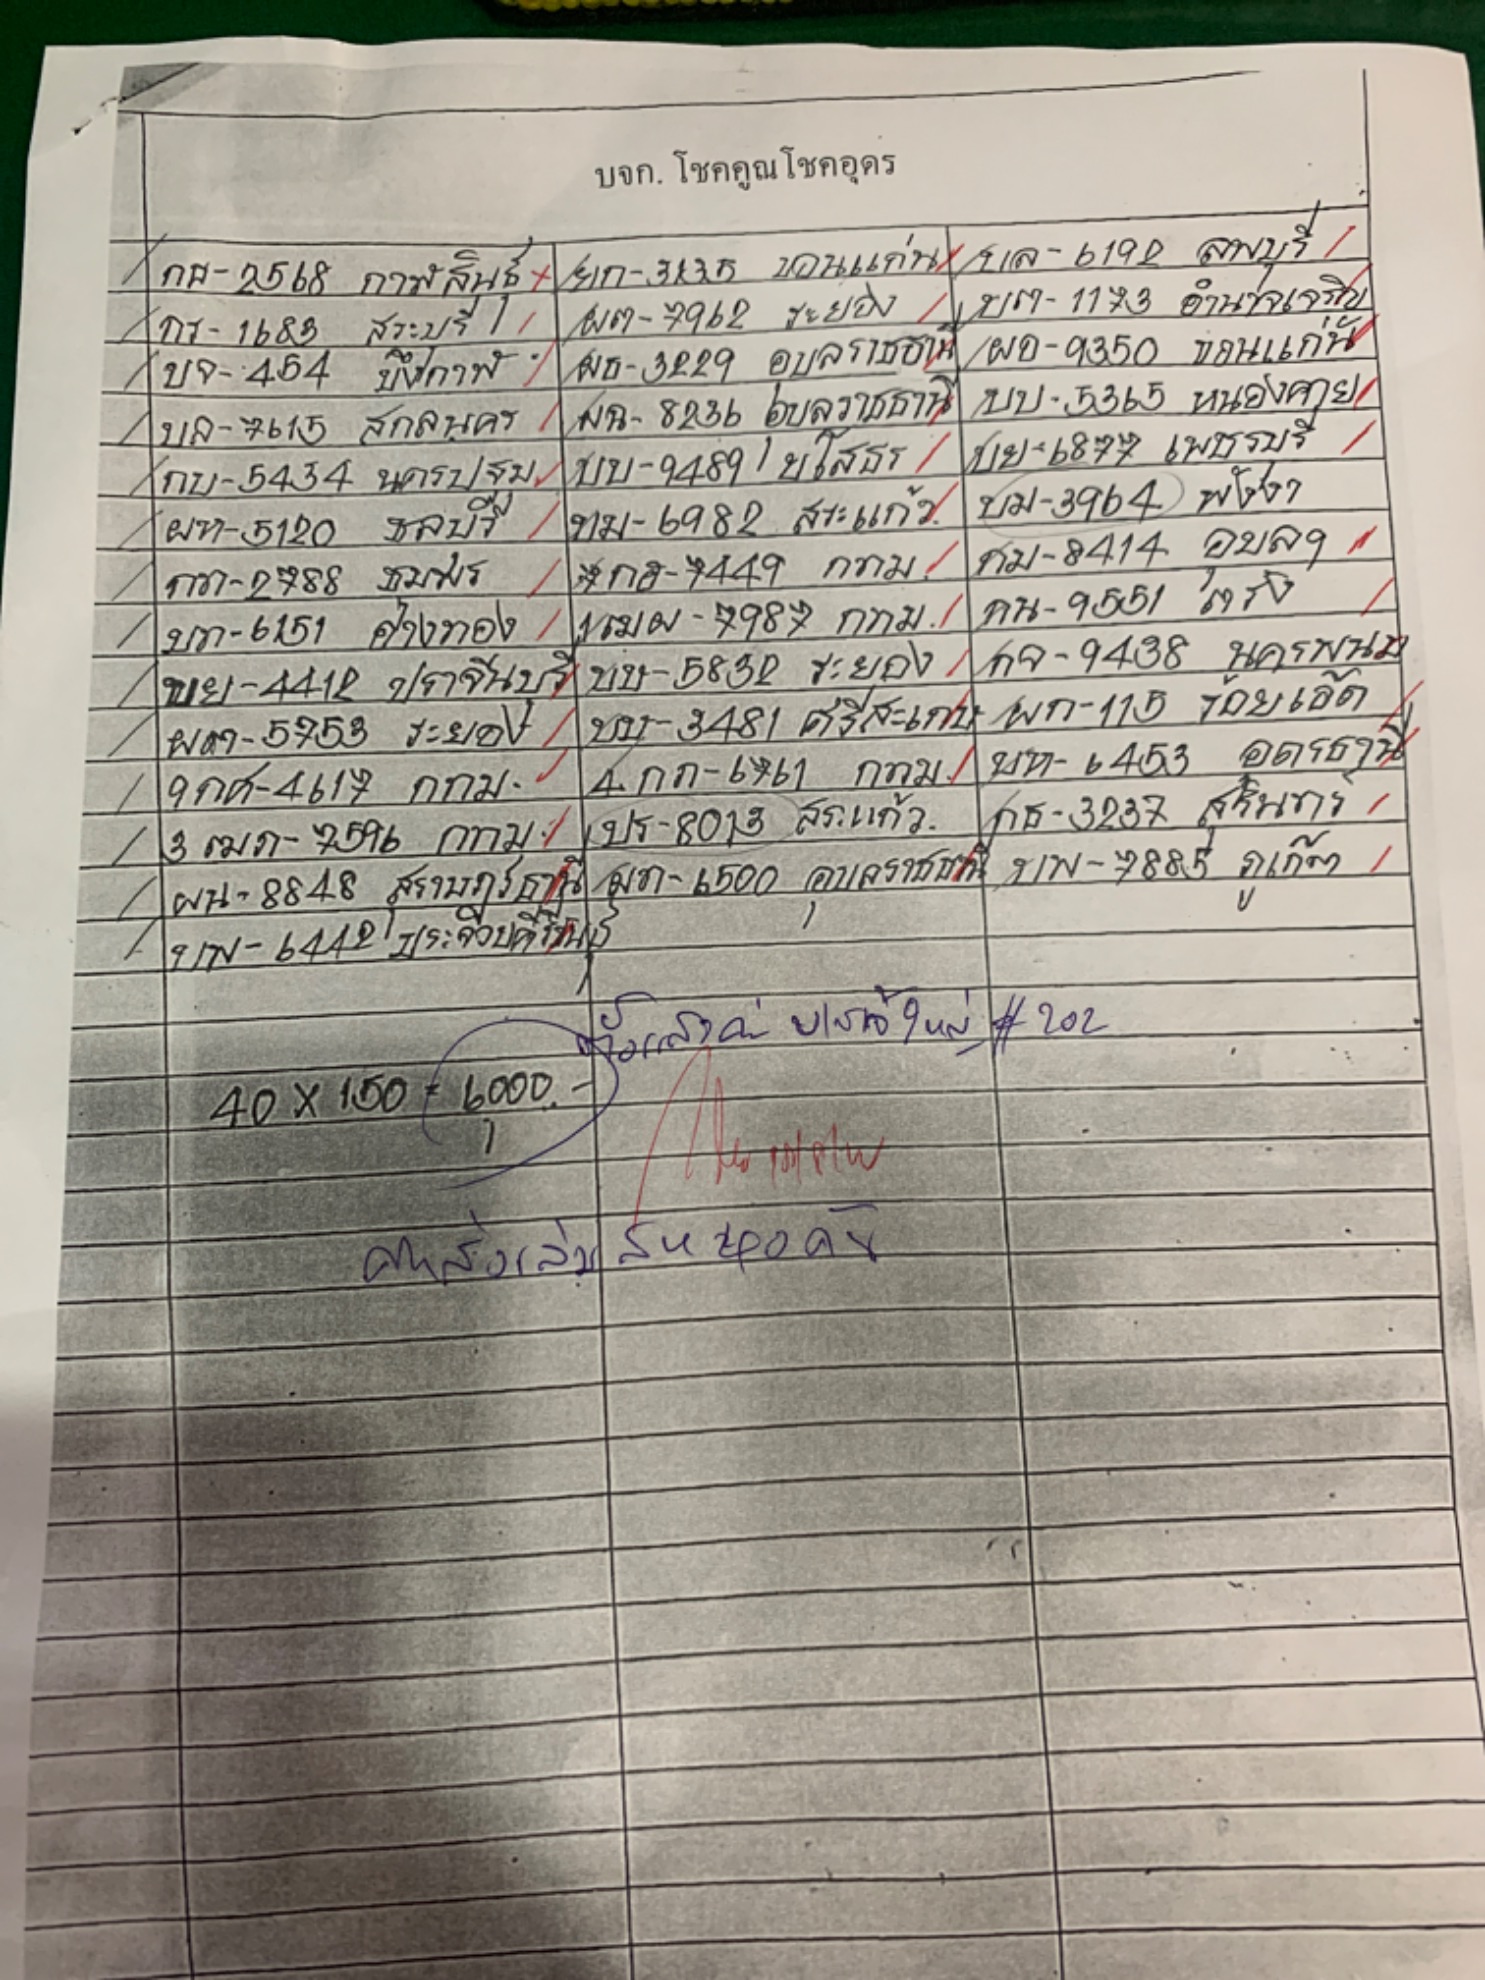 บจก. โชคคูณโชคอุดร
กส-2568 กาฬสินธุ์ ยก-3235 ขอนแก่น บล-6192 ลพบุรี
กร-1683 สระบุรี ผต-7962 ระยอง บต-1173 อำนาจเจริญ
บจ-454 บึงกาฬ ผธ-3229 อุบลราชธานี ผอ-9350 ขอนแก่น
บล-7615 สกลนคร ผฉ-8236 อุบลราชธานี บบ-5365 หนองคาย
กบ-5434 นครปฐม บบ-9489 ยโสธร บย-6877 เพชรบุรี
ผท-5120 ชลบุรี บม-6982 สระแก้ว. บม-3964 พังงา
กก-2788 ชุมพร 7กอ-7449 กทม. กม-8414 อุบลฯ
บก-6151 อ่างทอง 1เมผ-7987 กทม. กน-9551 ตรัง
ขย-4412 ปราจีนบุรี บบ-5832 ระยอง กจ-9438 นครพนม
ผต-5753 ระยอง บบ-3481 ศรีสะเกษ ผก-115 ร้อยเอ็ด
9กศ-4617 กทม. 4กภ-6761 กทม. บท-6453 อุดรธานี
3เมภ-7596 กทม. ปร-8013 สระแก้ว. กธ-3237 สุรินทร์
ผน-8848 สุราษฎร์ธานี ผก-6500 อุบลราชธานี บพ-7885 ภูเก็ต
บพ-6442 ประจวบคีรีขันธ์
# 202
40 X 150 = 6000.-